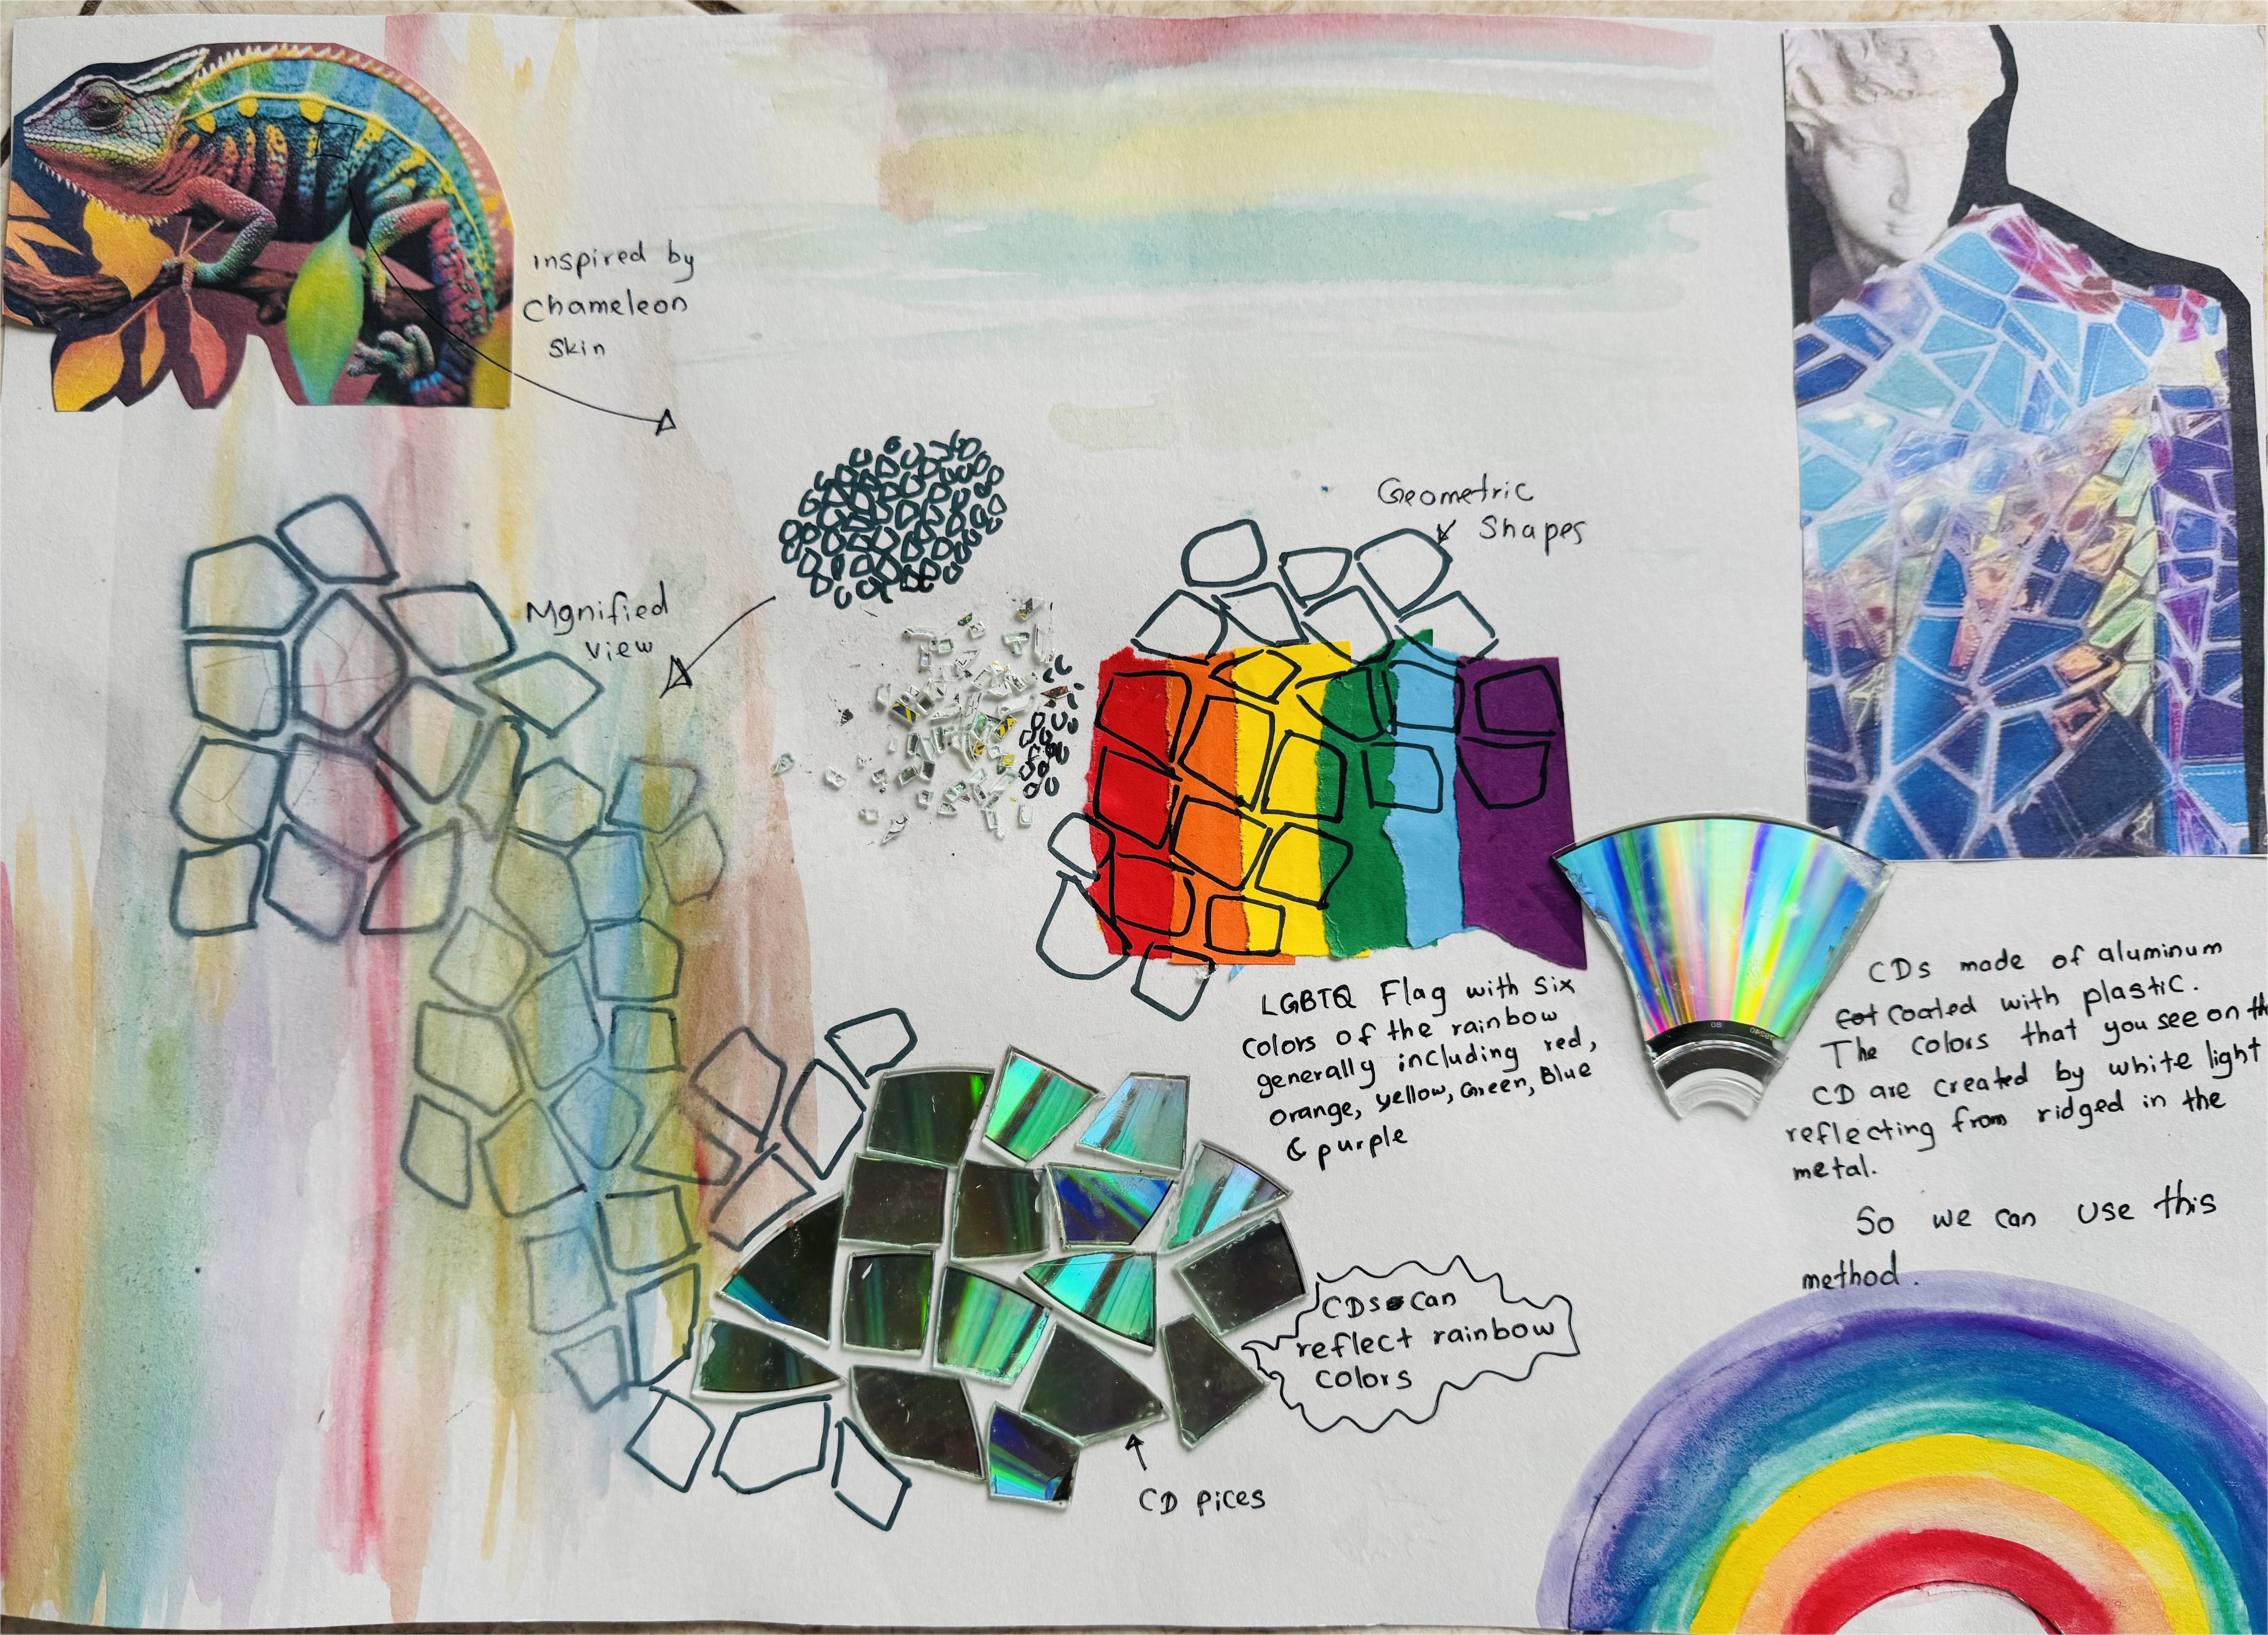 Inspired by
Chameleon
Skin
Mgnified
view
Geometric
Shapes
LGBTQ Flag with six
colors of the rainbow
generally including red,
orange, yellow, Green, Blue
& purple
CDs made of aluminum
cot coated with plastic.
The colors that you see on the
CD are created by white light
reflecting from ridged in the
metal.
So we can use this
method.
CDs can
reflect rainbow
colors
CD pices